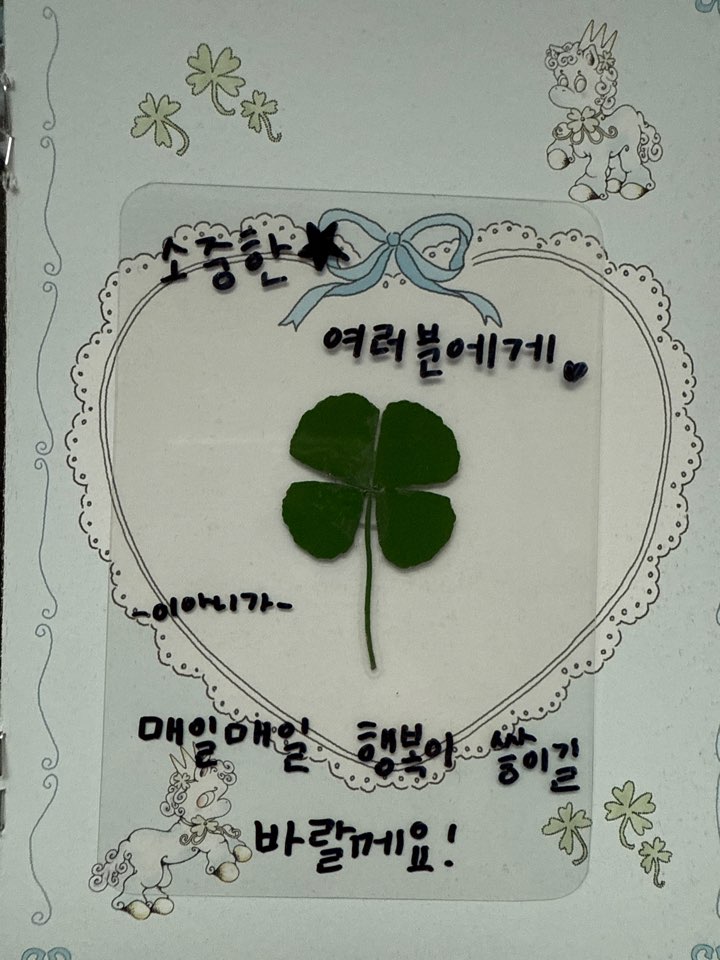 소중한★
여러분에게♥
-이아니가-
매일매일 행복이 쌓이길
바랄께요!